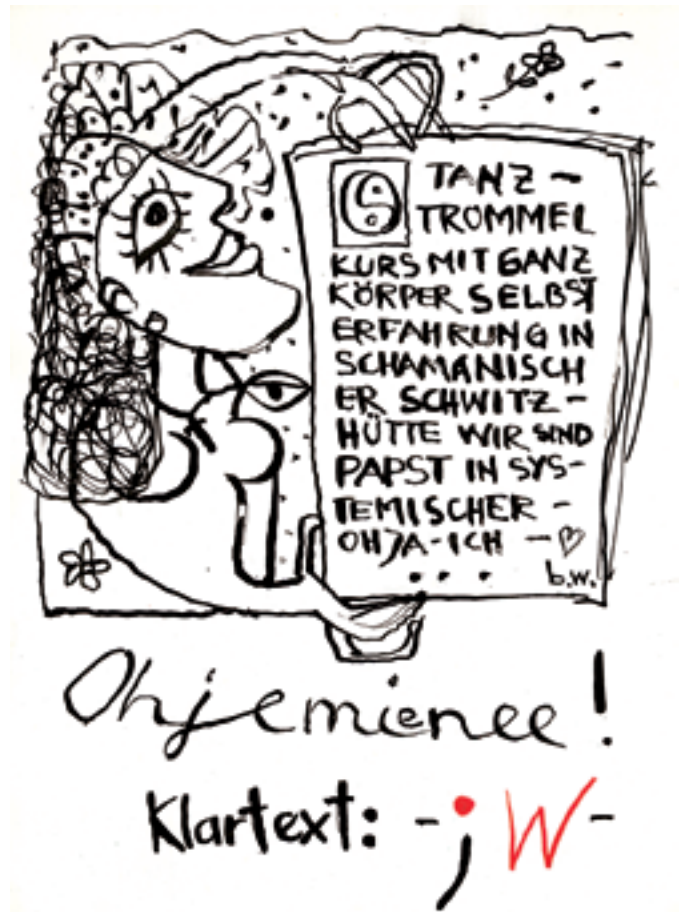 TANZ-
TROMMEL
KURS MIT GANZ
KÖRPER SELBST
ERFAHRUNG IN
SCHAMANISCH
ER SCHWITZ-
HÜTTE WIR SIND
PAPST IN SYS-
TEMISCHER -
OHJA-ICH - ♡
...
b.w.
Ohjemienee!
Klartext: -;W-